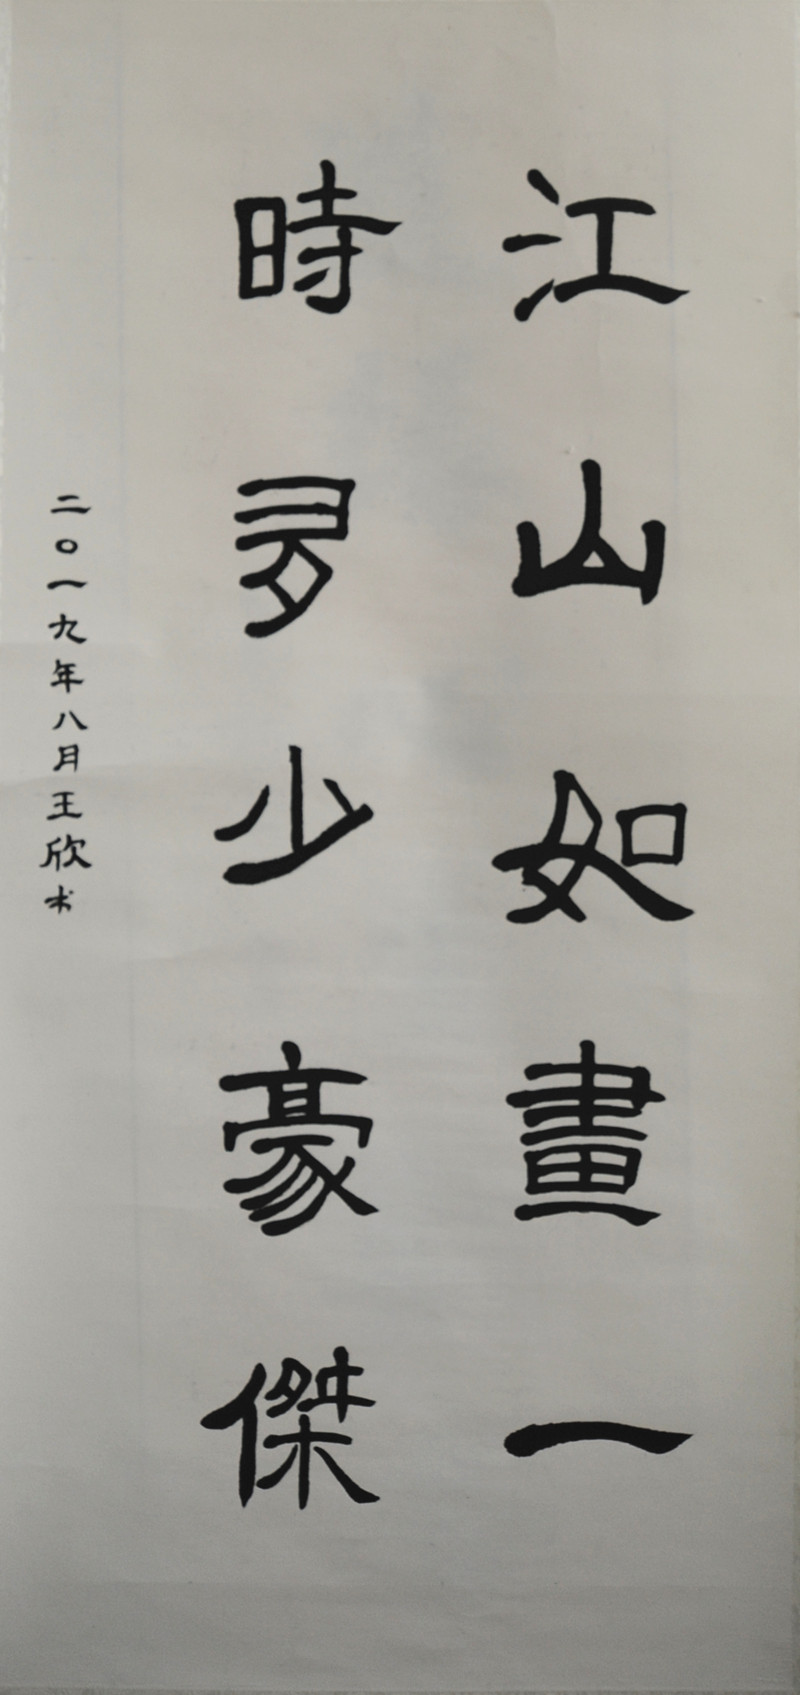 江山如畫一
時多少豪傑
二〇一九年八月王欣书